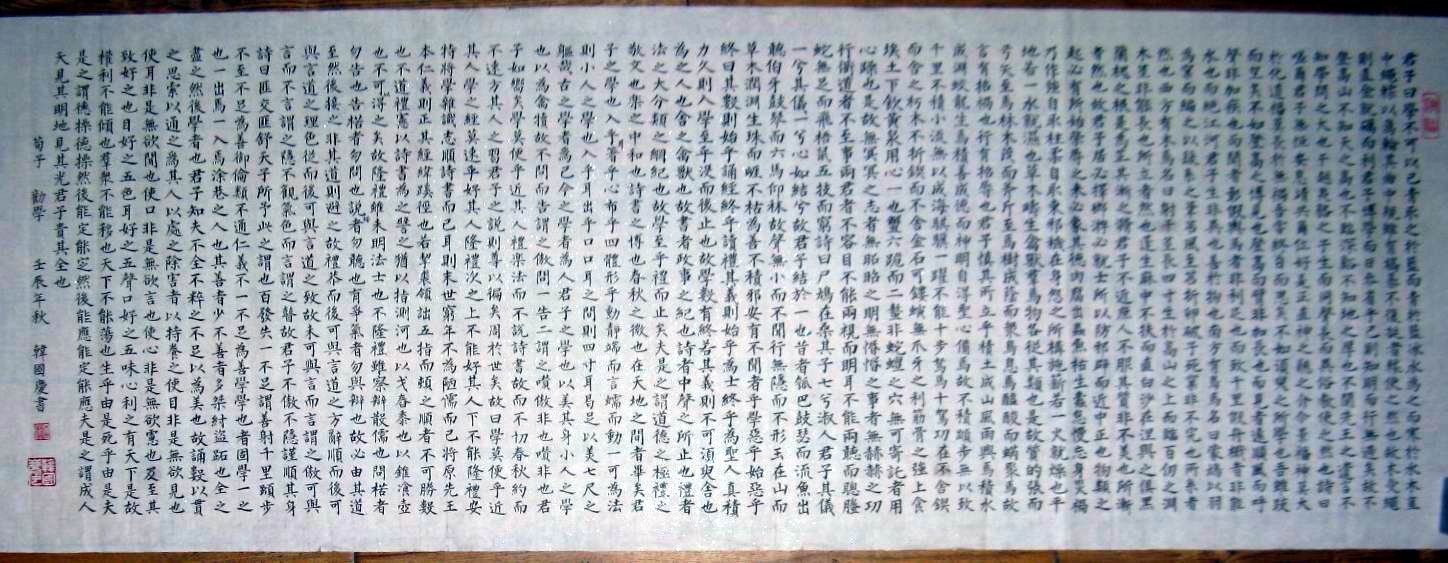 君子曰學不可以已青取之於藍而青於藍冰水為之而寒於水木直
中繩輮以為輪其曲中規雖有槁暴不復挺者輮使之然也故木受繩
則直金就礪則利君子博學而日參省乎己則知明而行無過矣故不
登高山不知天之高也不臨深谿不知地之厚也不聞先王之遺言不
知學問之大也干越夷貉之子生而同聲長而異俗教使之然也詩曰
嗟爾君子無恒安息靖共爾位好是正直神之聽之介爾景福神莫大
於化道福莫長於無禍吾嘗終日而思矣不如須臾之所學也吾嘗跂
而望矣不如登高之博見也登高而招臂非加長也而見者遠順風而呼
聲非加疾也而聞者彰假輿馬者非利足也而致千里假舟檝者非能
水也而絕江河君子生非異也善假於物也南方有鳥焉名曰蒙鳩以羽
為巢而編之以髮繫之葦苕風至苕折卵破子死巢非不完也所繫者
然也西方有木焉名曰射干莖長四寸生於高山之上而臨百仞之淵
木莖非能長也所立者然也蓬生麻中不扶而直白沙在涅與之俱黑
蘭槐之根是為芷其漸之滫君子不近庶人不服其質非不美也所漸
者然也故君子居必擇鄉遊必就士所以防邪辟而近中正也物類之
起必有所始榮辱之來必象其德肉腐出蟲魚枯生蠹怠慢忘身災禍
乃作強自取柱柔自取束邪穢在身怨之所構施薪若一火就燥也平
地若一水就濕也草木疇生禽獸群焉物各從其類也是故質的張而
弓矢至焉林木茂而斧斤至焉樹成蔭而眾鳥息焉醯酸而蜹聚焉故
言有招禍也行有招辱也君子慎其所立乎積土成山風雨興焉積水
成淵蛟龍生焉積善成德而神明自得聖心備焉故不積蹞步無以致
千里不積小流無以成海騏驥一躍不能十步駑馬十駕功在不舍鍥
而舍之朽木不折鍥而不舍金石可鏤螾無爪牙之利筋骨之強上食
埃土下飲黃泉用心一也蟹六跪而二螯非蛇蟺之穴無可寄託者用
心躁也是故無冥冥之志者無昭昭之明無惛惛之事者無赫赫之功
行衢道者不至事兩君者不容目不能兩視而明耳不能兩聽而聰螣
蛇無足而飛梧鼠五技而窮詩曰尸鳩在桑其子七兮淑人君子其儀
一兮其儀一兮心如結兮故君子結於一也昔者瓠巴鼓瑟而流魚出
聽伯牙鼓琴而六馬仰秣故聲無小而不聞行無隱而不形玉在山而
草木潤淵生珠而崖不枯為善不積邪安有不聞者乎學惡乎始惡乎
終曰其數則始乎誦經終乎讀禮其義則始乎為士終乎為聖人真積
力久則入學至乎沒而後止也故學數有終若其義則不可須臾舍也
為之人也舍之禽獸也故書者政事之紀也詩者中聲之所止也禮者
法之大分類之綱紀也故學至乎禮而止矣夫是之謂道德之極禮之
敬文也樂之中和也詩書之博也春秋之微也在天地之間者畢矣君
子之學也入乎耳著乎心布乎四體形乎動靜端而言蝡而動一可為法
則小人之學也入乎耳出乎口口耳之間則四寸耳曷足以美七尺之
軀哉古之學者為己今之學者為人君子之學也以美其身小人之學
也以為禽犢故不問而告謂之傲問一告二謂之囋傲非也囋非也君
子如嚮矣學莫便乎近其人禮樂法而不說詩書故而不切春秋約而
不速方其人之習君子之說則尊以徧矣周於世矣故曰學莫便乎近
其人學之經莫速乎好其人隆禮次之上不能好其人下不能隆禮安
特將學雜識志順詩書而已耳則末世窮年不為陋儒而已將原先王
本仁義則正其經緯蹊徑也若挈裘領詘五指而頓之順者不可勝數
也不道禮憲以詩書為之譬之猶以指測河也以戈舂黍也以錐飡壺
也不可得之矣故隆禮雖未明法士也不隆禮雖察辯散儒也問楛者
勿告也告楛者勿問也說楛者勿聽也有爭氣者勿與辯也故必由其道
至然後接之非其道則避之故禮恭而後可與言道之方辭順而後可
與言道之理色從而後可與言道之致故未可與言而言謂之傲可與
言而不言謂之隱不觀氣色而言謂之瞽故君子不傲不隱謹順其身
詩曰匪交匪舒天子所予此之謂也百發失一不足謂善射千里蹞步
不至不足為善御倫類不通仁義不一不足為善學學也者固學一之
也一出焉一入焉涂巷之人也其善者少不善者多桀紂盜跖也全之
盡之然後學者也君子知夫不全不粹之不足以為美也故誦數以貫
之思索以通之為其人以處之除其害者以持養之使目非是無欲見也
使耳非是無欲聞也使口非是無欲言也使心非是無欲慮也及至其
致好之也目好之五色耳好之五聲口好之五味心利之有天下是故
權利不能傾也群眾不能移也天下不能蕩也生乎由是死乎由是夫
是之謂德操德操然後能定能定然後能應能定能應夫是之謂成人
天見其明地見其光君子貴其全也
荀子 勸學 壬辰年秋 韓國慶書